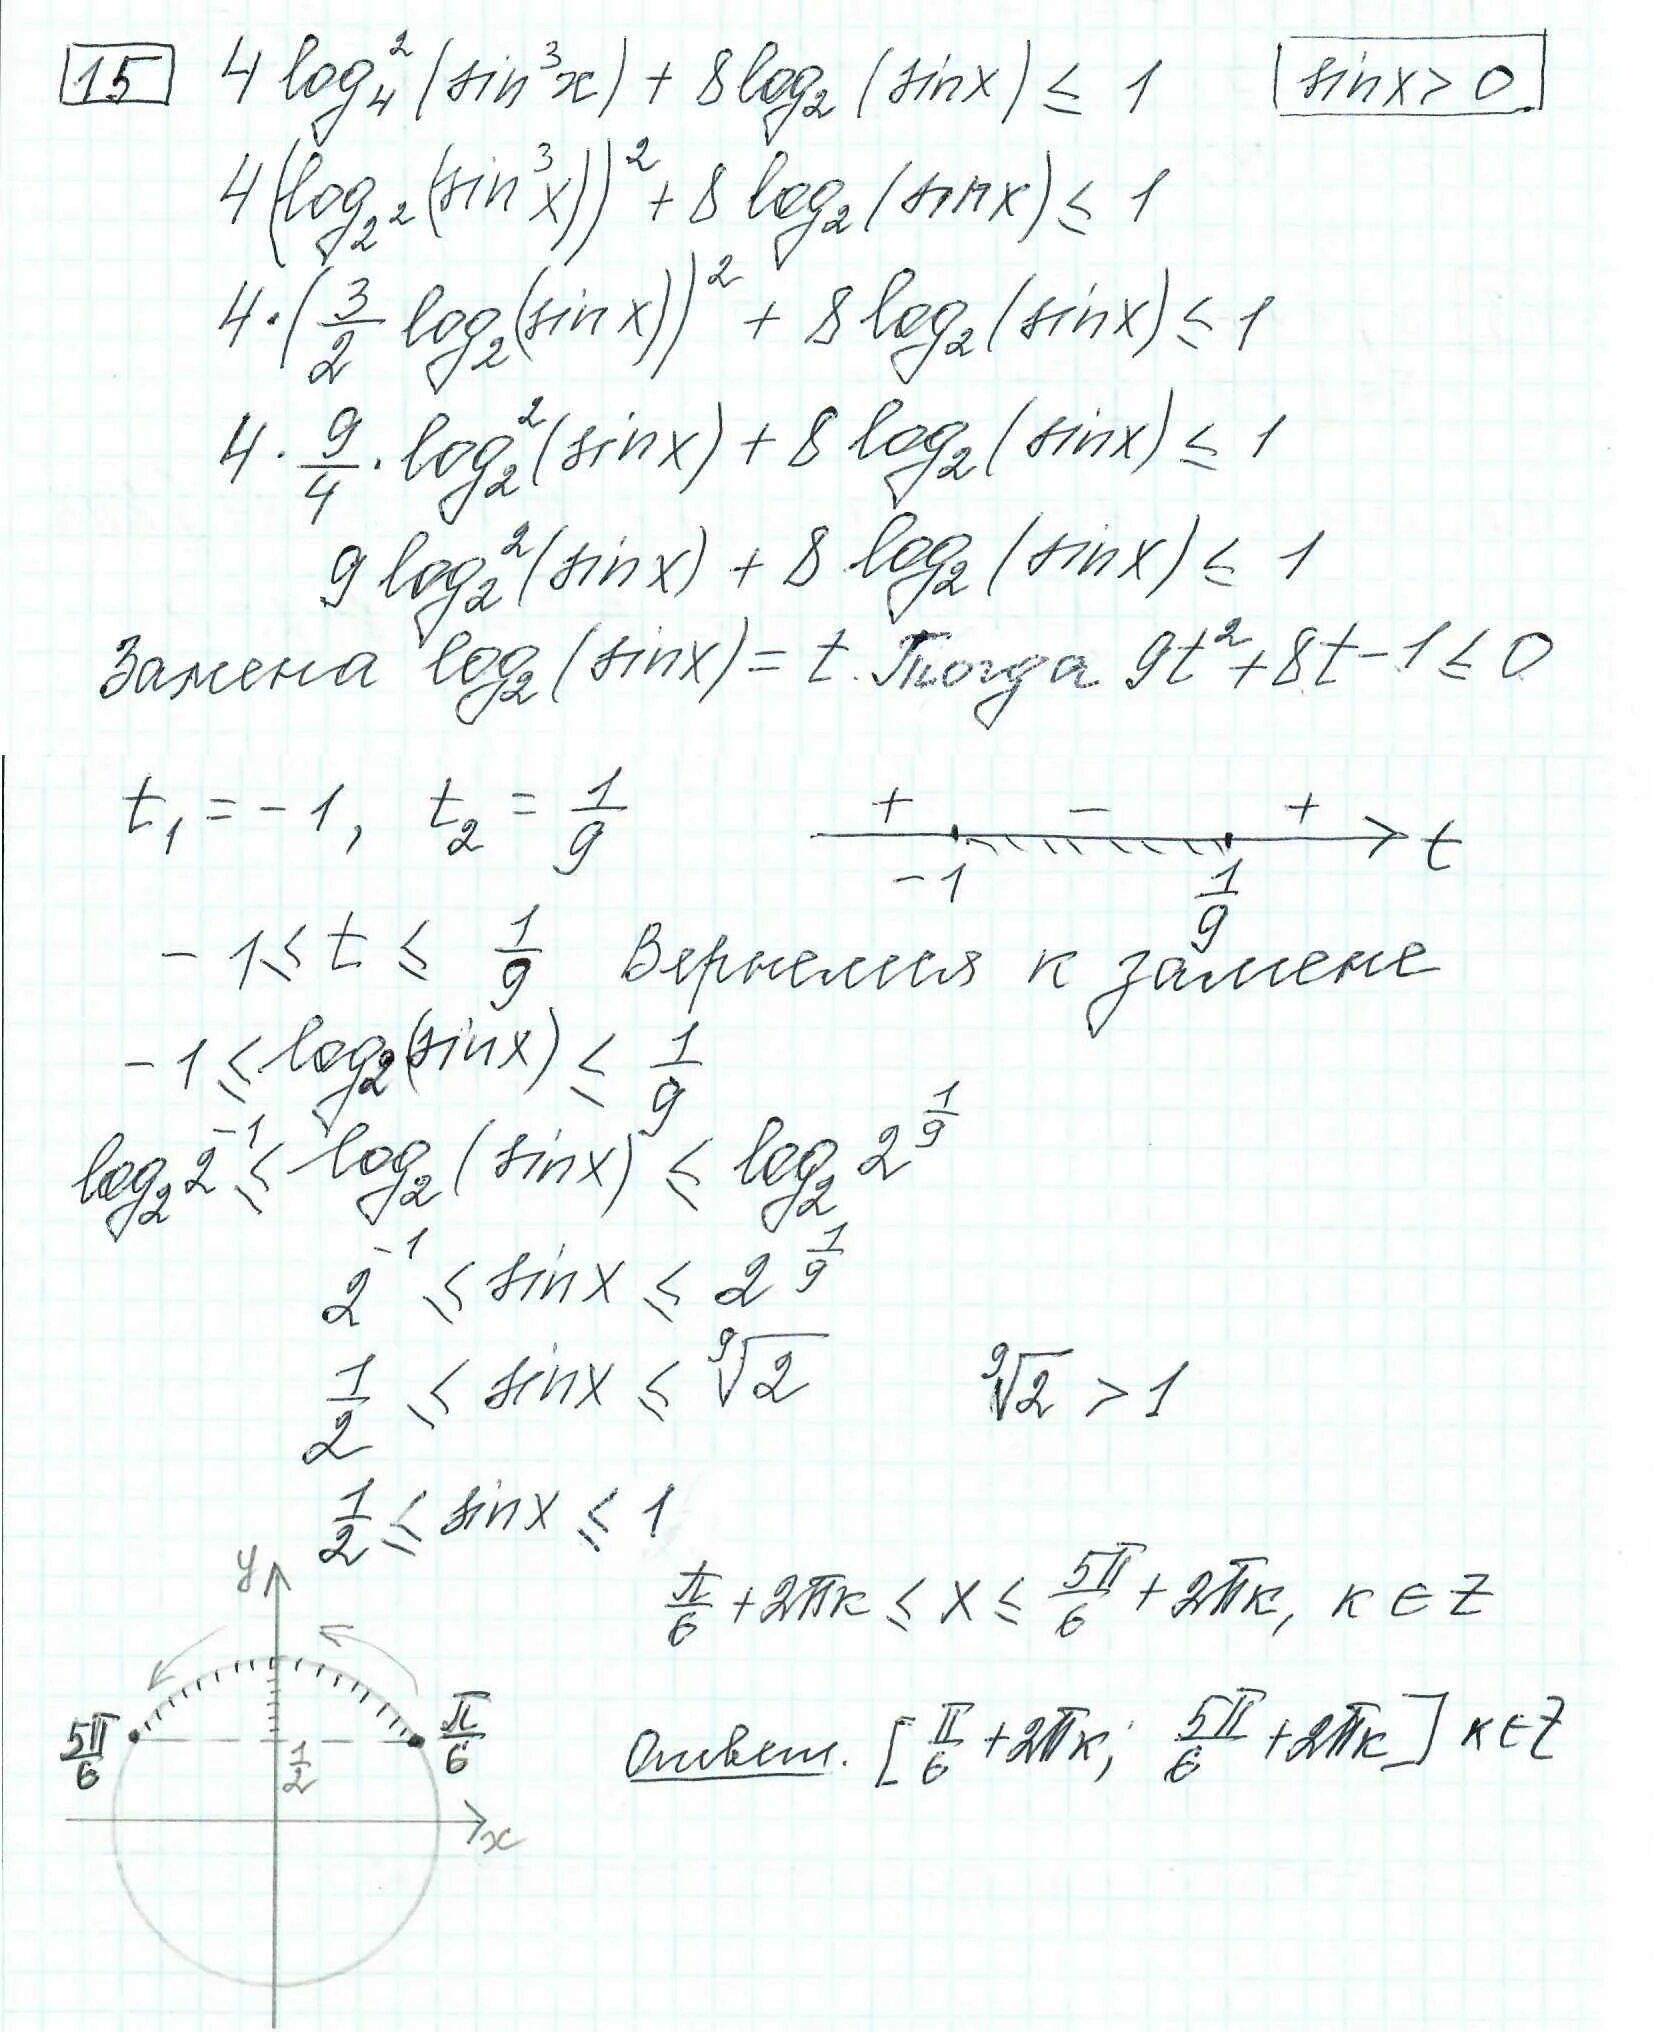 15 4 log₄²(sin³x) + 8 log₂(sinx) ≤ 1 sinx > 0
4(log₂²(sin³x))² + 8 log₂(sinx) ≤ 1
4·(3/2 log₂(sinx))² + 8 log₂(sinx) ≤ 1
4 · 9/4 · log₂²(sinx) + 8 log₂(sinx) ≤ 1
9 log₂²(sinx) + 8 log₂(sinx) ≤ 1
Замена log₂(sinx) = t. Тогда 9t² + 8t - 1 ≤ 0
t₁ = -1, t₂ = 1/9
+ − +
-1 1/9 t
-1 ≤ t ≤ 1/9 Вернемся к замене
-1 ≤ log₂(sinx) ≤ 1/9
log₂2⁻¹ ≤ log₂(sinx) ≤ log₂2^(1/9)
2⁻¹ ≤ sinx ≤ 2^(1/9)
1/2 ≤ sinx ≤ ⁹√2 ⁹√2 > 1
1/2 ≤ sinx ≤ 1
π/6 + 2πк ≤ x ≤ 5π/6 + 2πк, к ∈ Z
y
5π/6 1/2 π/6
x
Ответ. [π/6 + 2πк; 5π/6 + 2πк] к ∈ Z